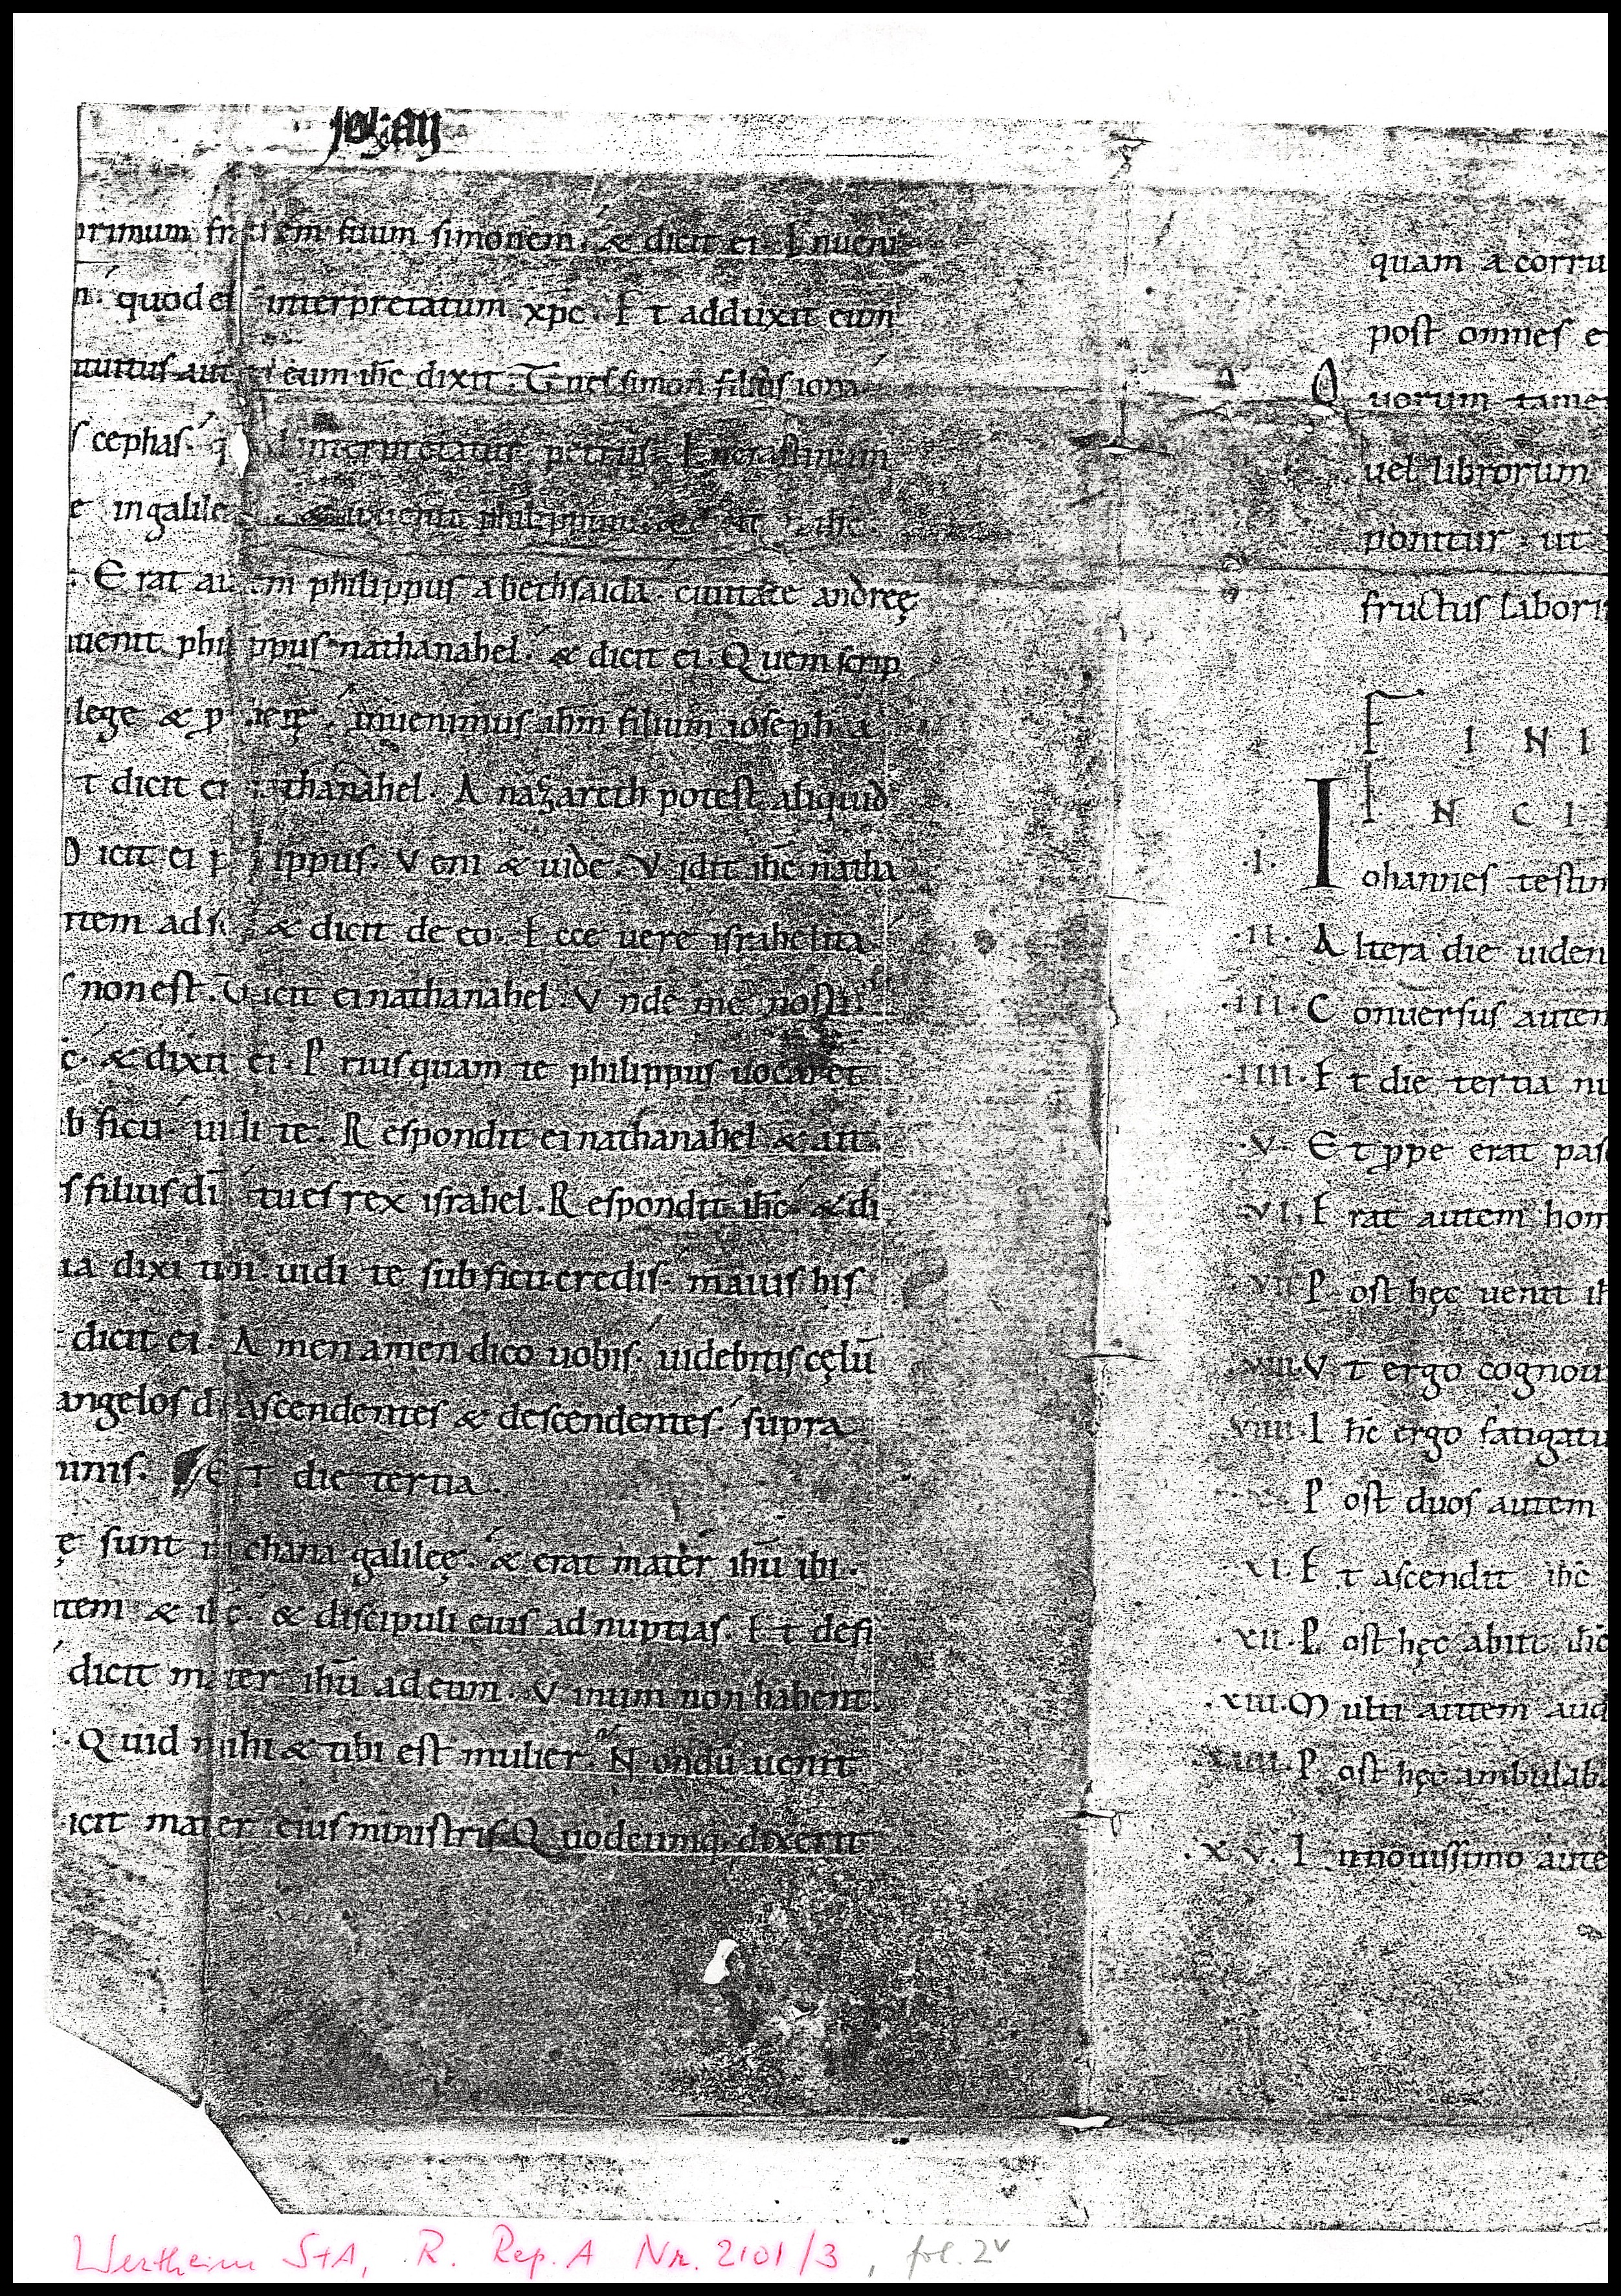 Johan
primum fratrem suum simonem. & dicit ei. Inueni
n. quod est interpretatum xpc. Et adduxit eum
intuitus aut eum ihc dixit. Tu es simon filius iona
s cephas. quod interpretatur petrus. In crastinum
e in galile & inuenit philippum. & dicit ei ihc
Erat autem philippus a bethsaida. ciuitate andreę
uenit philippus nathanahel. & dicit ei. Quem scrip
lege & p inuenimus ihm filium ioseph a
t dicit ei nathanahel. A nazareth potest aliquid
Dicit ei philippus. Veni & uide. Vidit ihc natha
ntem ad se & dicit de eo. Ecce uere israhelita
s non est. Dicit ei nathanahel. Vnde me nosti.
c. & dixit ei. Priusquam te philippus uocaret
b ficu. uidi te. Respondit ei nathanahel & ait.
s filius di tu es rex israhel. Respondit ihc. & di
ia dixi tibi uidi te sub ficu credis. maius his
dicit ei. Amen amen dico uobis. uidebitis cęlu
angelos di ascendentes & descendentes. supra
unis. Et die tertia.
ę sunt in chana galileę. & erat mater ihu ibi.
tem & ihc. & discipuli eius ad nuptias. Et defi
dicit mater ihu ad eum. Vinum non habent.
Quid mihi & tibi est mulier. Nondu uenit
icit mater eius ministris Quodcumq. dixerit
quam a corru
post omnes e
Quorum tame
uel librorum
ponitur. ut
fructus labori
FINI
INCI
.I. Iohannes testim
.II. Altera die uiden
.III. Conuersus autem
.IIII. Et die tertia nu
.V. Et ppe erat pas
.VI. Erat autem hom
.VII. Post hęc uenit ih
.VIII. Vt ergo cognoui
VIIII. Ihc ergo fatigatu
Post duos autem
.XI. Et ascendit ihc
.XII. Post hęc abiit ihc
.XIII. Multi autem aud
XIIII. Post hęc ambulab
.XV. In nouissimo aute
Wertheim StA, R. Rep. A Nr. 2101/3, fol. 2v